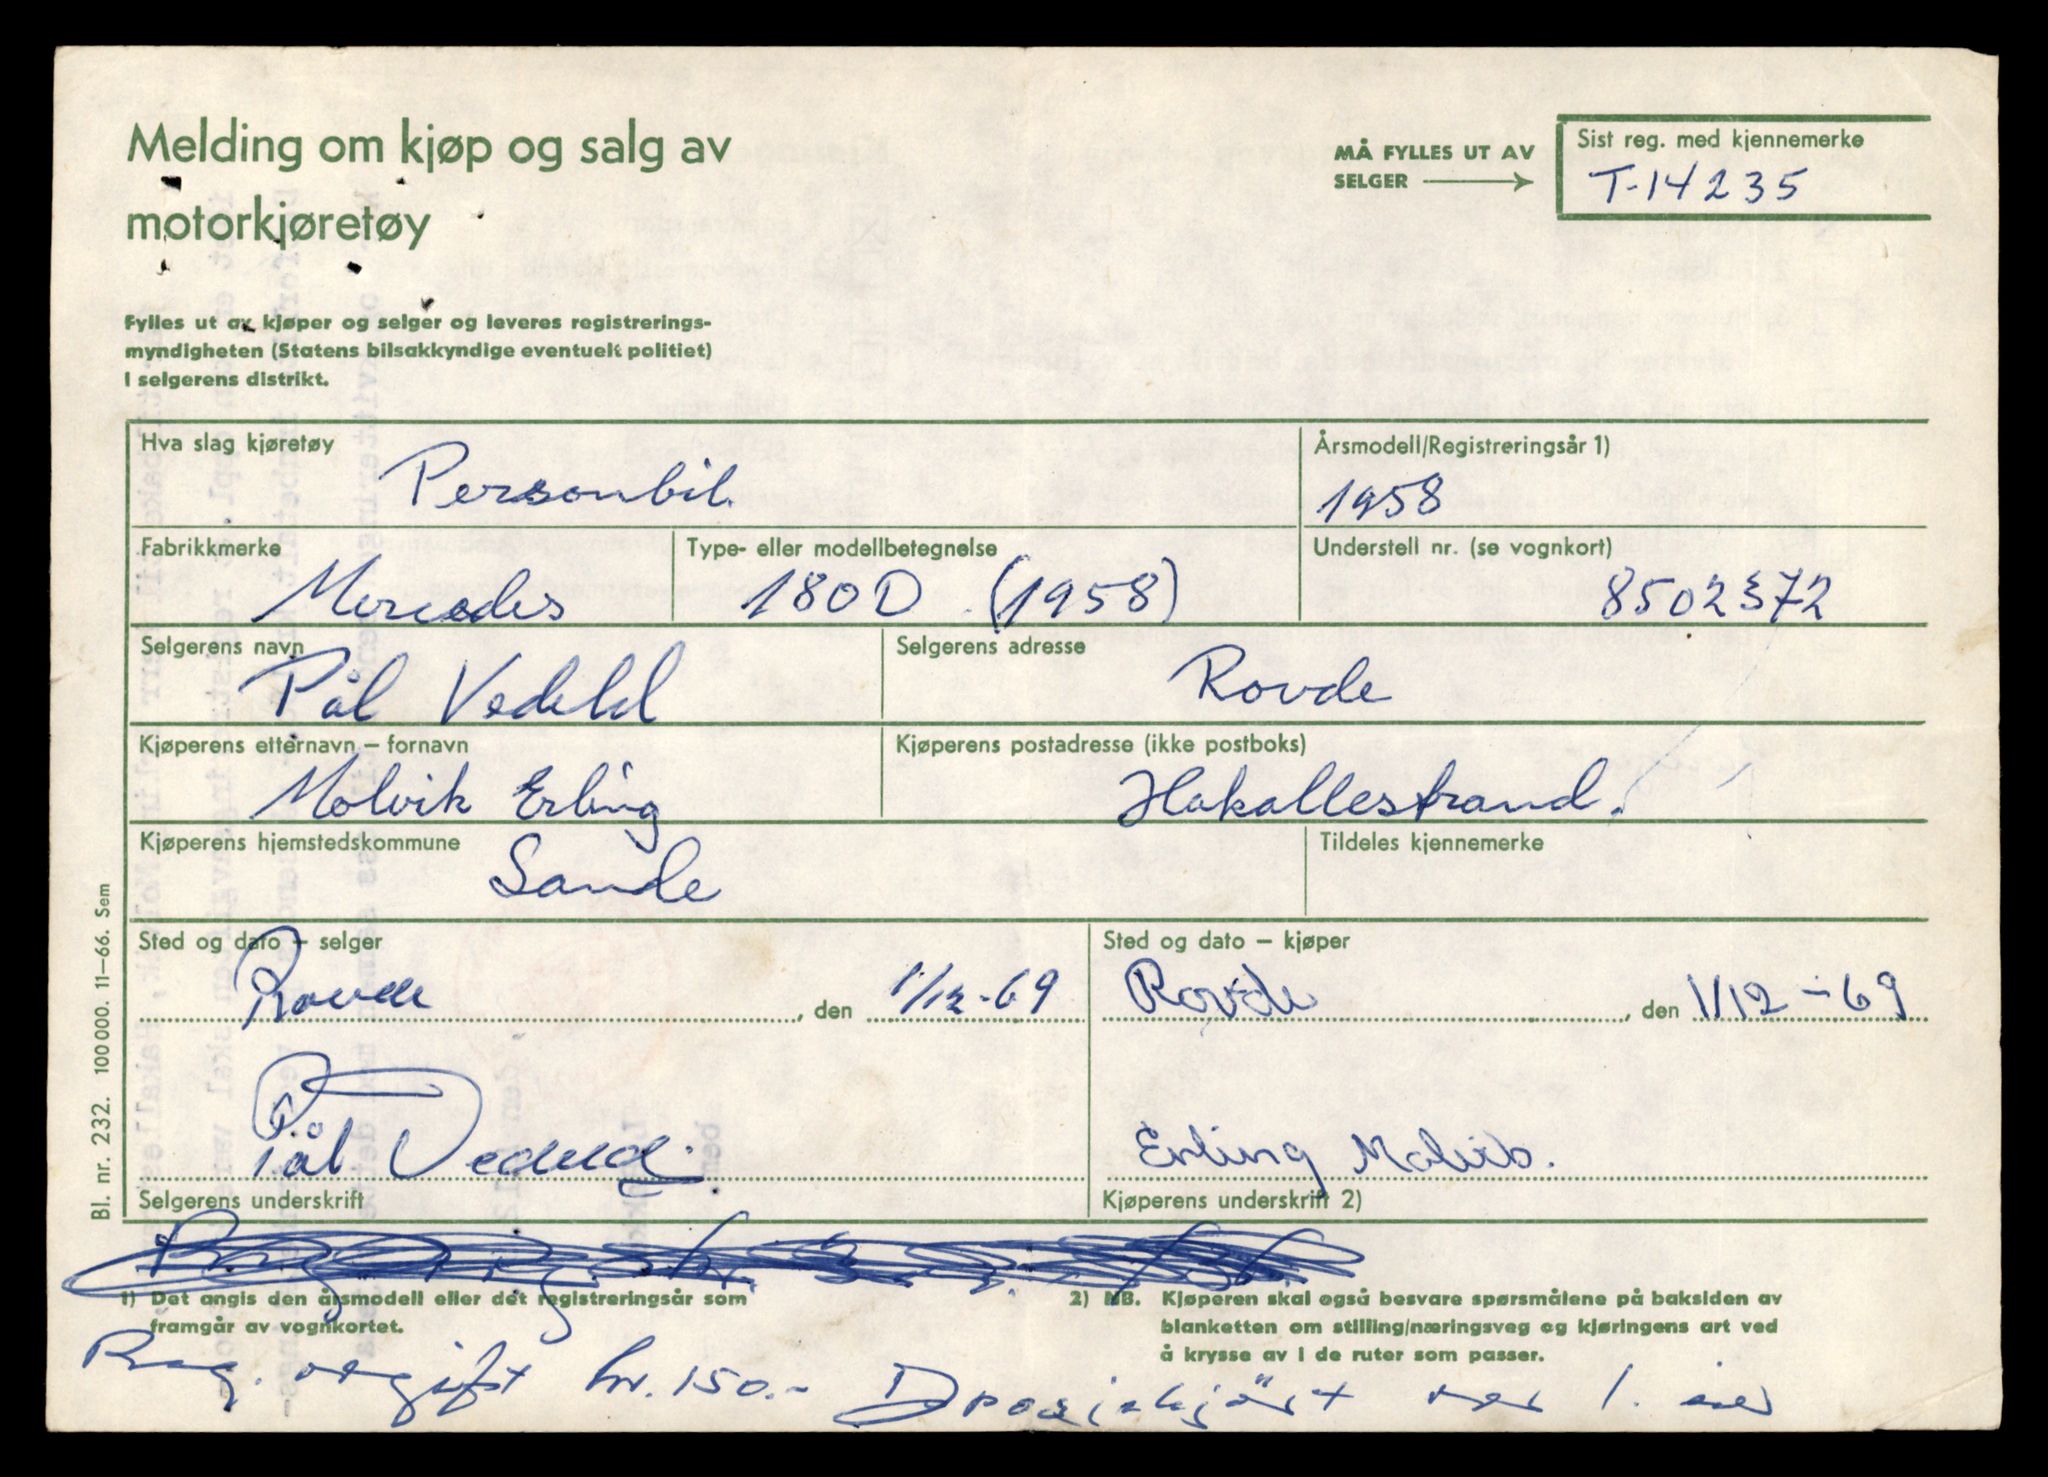 Melding om kjøp og salg av
motorkjøretøy
MÅ FYLLES UT AV
SELGER
Sist reg. med kjennemerke
T-14235
Fylles ut av kjøper og selger og leveres registrerings-
myndigheten (Statens bilsakkyndige eventuelt politiet)
i selgerens distrikt.
Hva slag kjøretøy
Personbil
Årsmodell/Registreringsår 1)
1958
Fabrikkmerke
Mercedes
Type- eller modellbetegnelse
180D (1958)
Understell nr. (se vognkort)
8502372
Selgerens navn
Pål Vedeld
Selgerens adresse
Rovde
Kjøperens etternavn – fornavn
Molvik Erling
Kjøperens postadresse (ikke postboks)
Hakallestrand.
Kjøperens hjemstedskommune
Sande
Tildeles kjennemerke
Sted og dato – selger
Rovde, den 1/12-69
Sted og dato – kjøper
Rovde, den 1/12-69
Pål Vedeld.
Selgerens underskrift
Erling Molvik.
Kjøperens underskrift 2)
1) Det angis den årsmodell eller det registreringsår som
framgår av vognkortet.
2) NB. Kjøperen skal også besvare spørsmålene på baksiden av
blanketten om stilling/næringsveg og kjøringens art ved
å krysse av i de ruter som passer.
Reg. avgift kr. 150.- Drosjekjört 1.
Bl. nr. 232. 100 000. 11–66. Sem